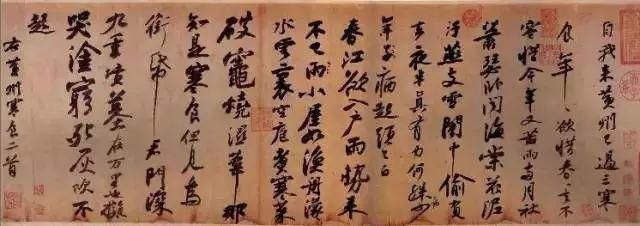 自我來黃州已過三寒
食年々欲惜春春去不
容惜今年又苦雨兩月秋
蕭瑟卧聞海棠花泥
汙燕支雪闇中偷負
去夜半真有力何殊病少
年子病起須已白
春江欲入戶雨勢來
不已雨小屋如漁舟濛濛
水雲裏空庖煮寒菜
破竈燒濕葦那
知是寒食但見烏
銜帋君門深
九重墳墓在万里也擬
哭塗窮死灰吹不
起
右黃州寒食二首